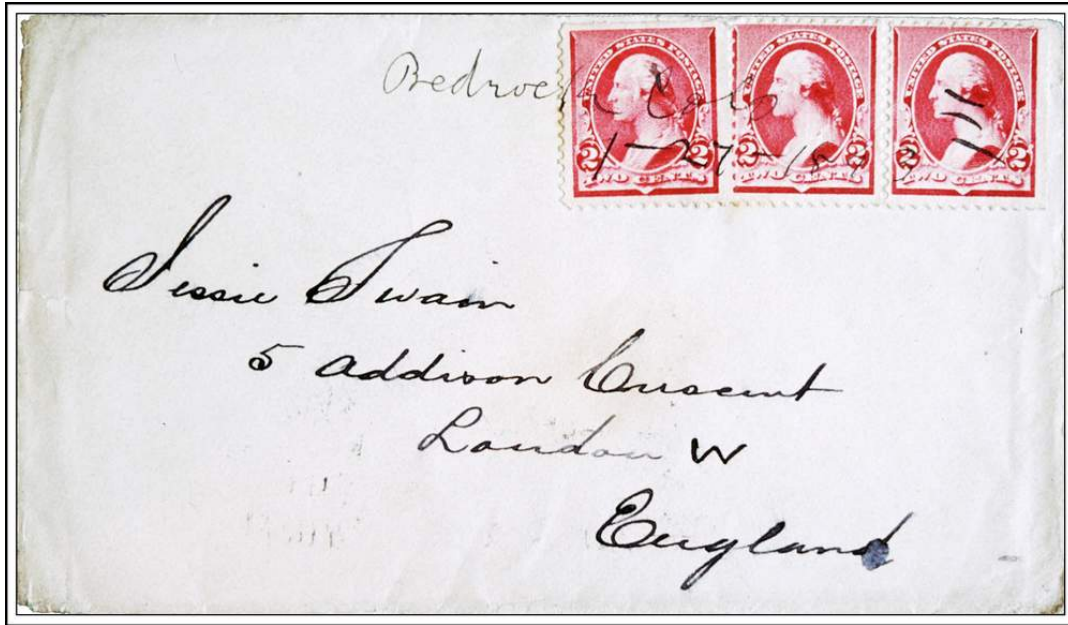 Bedrock Colo
1-27-18
UNITED STATES POSTAGE
2 2
TWO CENTS
UNITED STATES POSTAGE
2 2
TWO CENTS
UNITED STATES POSTAGE
2 2
TWO CENTS
Jessie Swain
5 Addison Crescent
London W
England